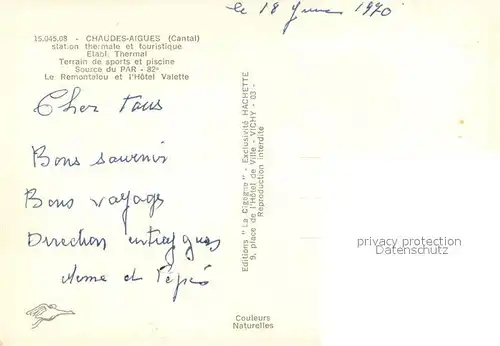 le 18 Juin 1970
15.045.08 - CHAUDES-AIGUES (Cantal)
station thermale et touristique
Etabl. Thermal
Terrain de sports et piscine
Source du PAR - 82°
Le Remontalou et l'Hôtel Valette
Cher tous
Bons souvenir
Bons voyages
Direction entraygues
et Pépés
Editions "La Cigogne" - Exclusivité HACHETTE
9, place de l'Hôtel de Ville - VICHY - 03 -
Reproduction interdite
privacy protection
Datenschutz
Couleurs
Naturelles